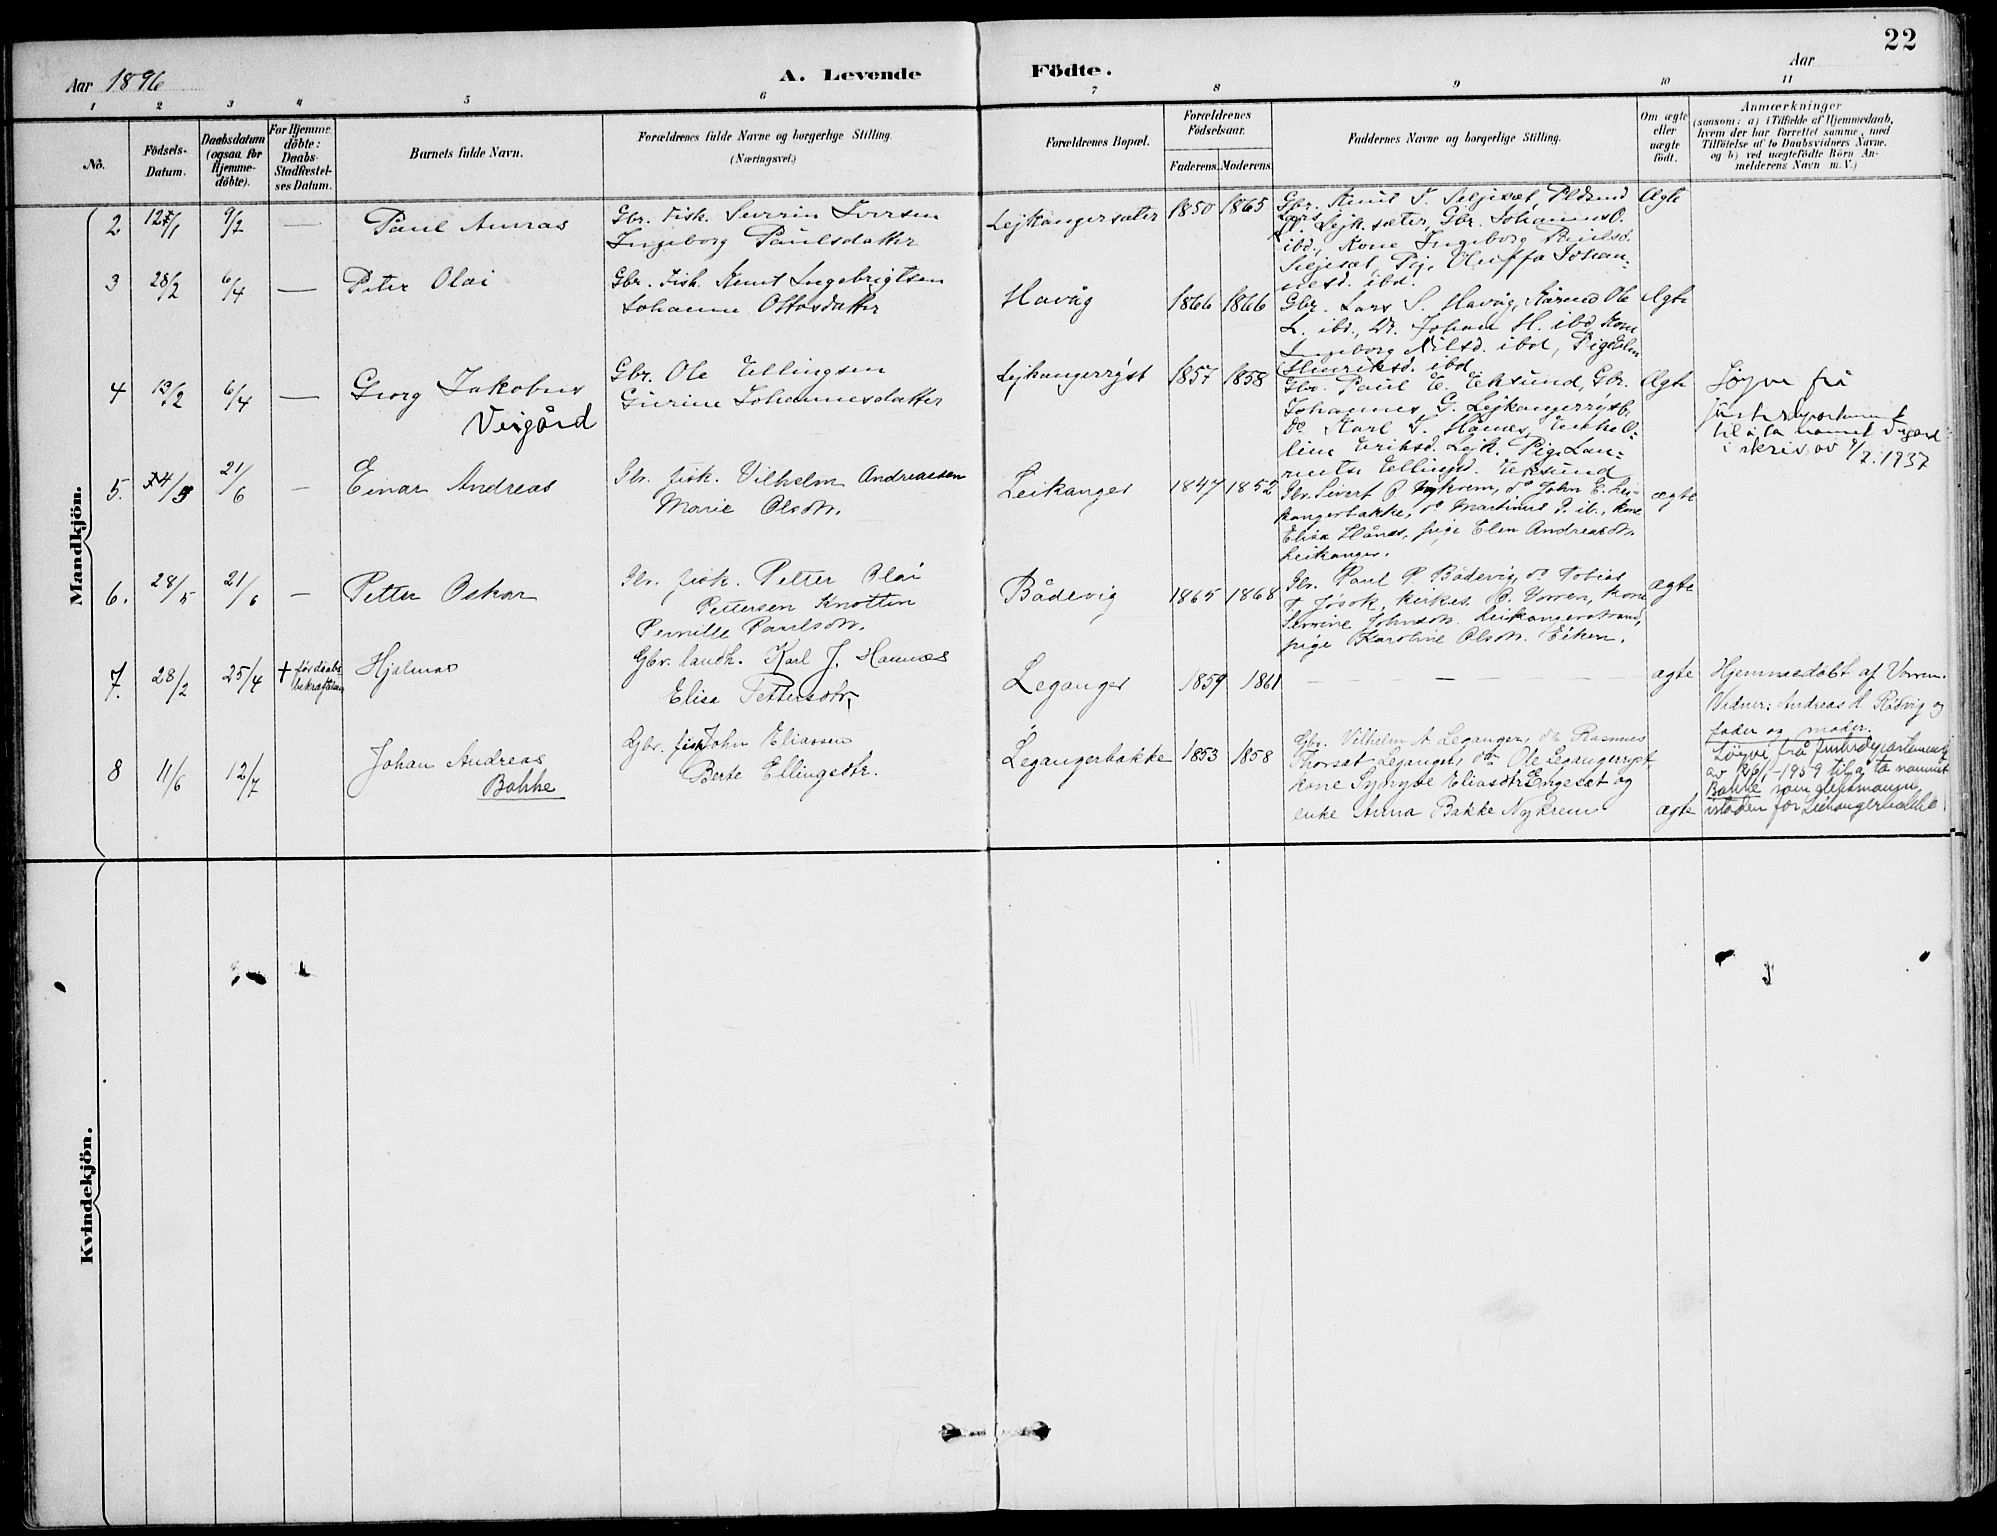 22
Aar 1896
A. Levende Födte.
Aar
1 2 3 4 5 6 7 8 9 10 11
Nö.
Födsels-Datum.
Daabsdatum (ogsaa for Hjemme-döbte).
For Hjemme-döbte: Daabs-Stadfæstel-ses Datum.
Barnets fulde Navn.
Forældrenes fulde Navne og borgerlige Stilling.
(Næringsvei.)
Forældrenes Bopæl.
Forældrenes Födselsaar.
Faderens. Moderens.
Faddernes Navne og borgerlige Stilling.
Om ægte eller uægte födt.
Anmærkninger
(saasom: a) i Tilfælde af Hjemmedaab,
hvem der har forrettet samme, med
Tilföielse af to Daabsvidners Navne.
og b) ved uægtefödte Börn An-
melderens Navn m. V.)
Mandkjön.
2 /1 9/2 — Paul
Gbr. Fisk. Severin Iversen
Ingeborg Paulsdatter
Lejkangersæter 1850 1865
Gbr. Knut
Lejk.sæter, Gbr. Johannes O.
ibd., Kone Ingeborg
Johan-
nesd. ibd.
Ægte
3 28/2 6/4 — Peter Olai
Gbr. Fisk. Knut Ingebrigtsen
Johanne Ottosdatter
Havåg 1866 1866
Gbr. Lars S. Havåg, Ole
L. ibd., Johan H. ibd, Kone
Ingeborg Nilsd. ibd, Pige
Henriksd. ibd
Ægte
4 13/2 6/4 — Georg Jakobus
Veigård
Gbr. Ole Ellingsen
Gurine Johannesdatter
Lejkangerrÿst 1857 1858
Gbr. Paul E. Eksund, Gbr.
Johannes G. Lejkangerrÿst,
do Karl J. Hånes, Enke O-
line Eriksd. Lejk. Pige Lau-
rentse Ellingsd. Eksund
Ægte
Løyve frå
Justisdepartementet
til å ta namnet Veigård
i skriv av 9/7.1937
5. 4/5 21/6 — Einar Andreas
Gbr. fisk. Vilhelm Andreassen
Marie Olsdtr.
Leikanger 1847 1852
Gbr. Sivert P. Nykrem, do John E. Lei-
kangerbakke, do Martinus P. ib., kone
Elisa Hånes, pige Elen Andreasdtr.
Leikanger.
ægte
6. 28/5 21/6 — Petter Oskar
Gbr. fisk. Petter Olai
Pettersen Knotten
Pernille Paulsdtr.
Bådevig 1865 1868
Gbr. Paul P. Bådevig, do Tobias
T. Jøsok, kirkes. Vorren, kone
Severine Johnsdtr. Leikangerstrand,
pige Karoline Olsdtr. Eiken.
ægte
7. 28/2 25/4 † før daabs-
bekræftelsen
Hjalmar
Gbr. landh. Karl J. Hannes
Elisa Pettersdtr.
Leganger 1859 1861 — — — —
ægte
Hjemmedøbt af Vorren.
Vidner: Andreas H. Rødvig og
fader og moder
8 11/6 12/7 Johan Andreas
Bakke
Gbr. fisk John Eliassen
Berte Ellingsdtr.
Legangerbakke 1853 1858
Gbr. Vilhelm A. Leganger, do Rasmus
Thorset Leganger, do Ole Legangerryst
kone Synnøve Eliasdtr Engeset og
enke Anna Bakke Nykrem
ægte
Løyvi frå Justisdepartementet
av 26/1-1959 til å ta namnet
Bakke som slektsnamn
istaden for Leikangerbakke
Kvindekjön.